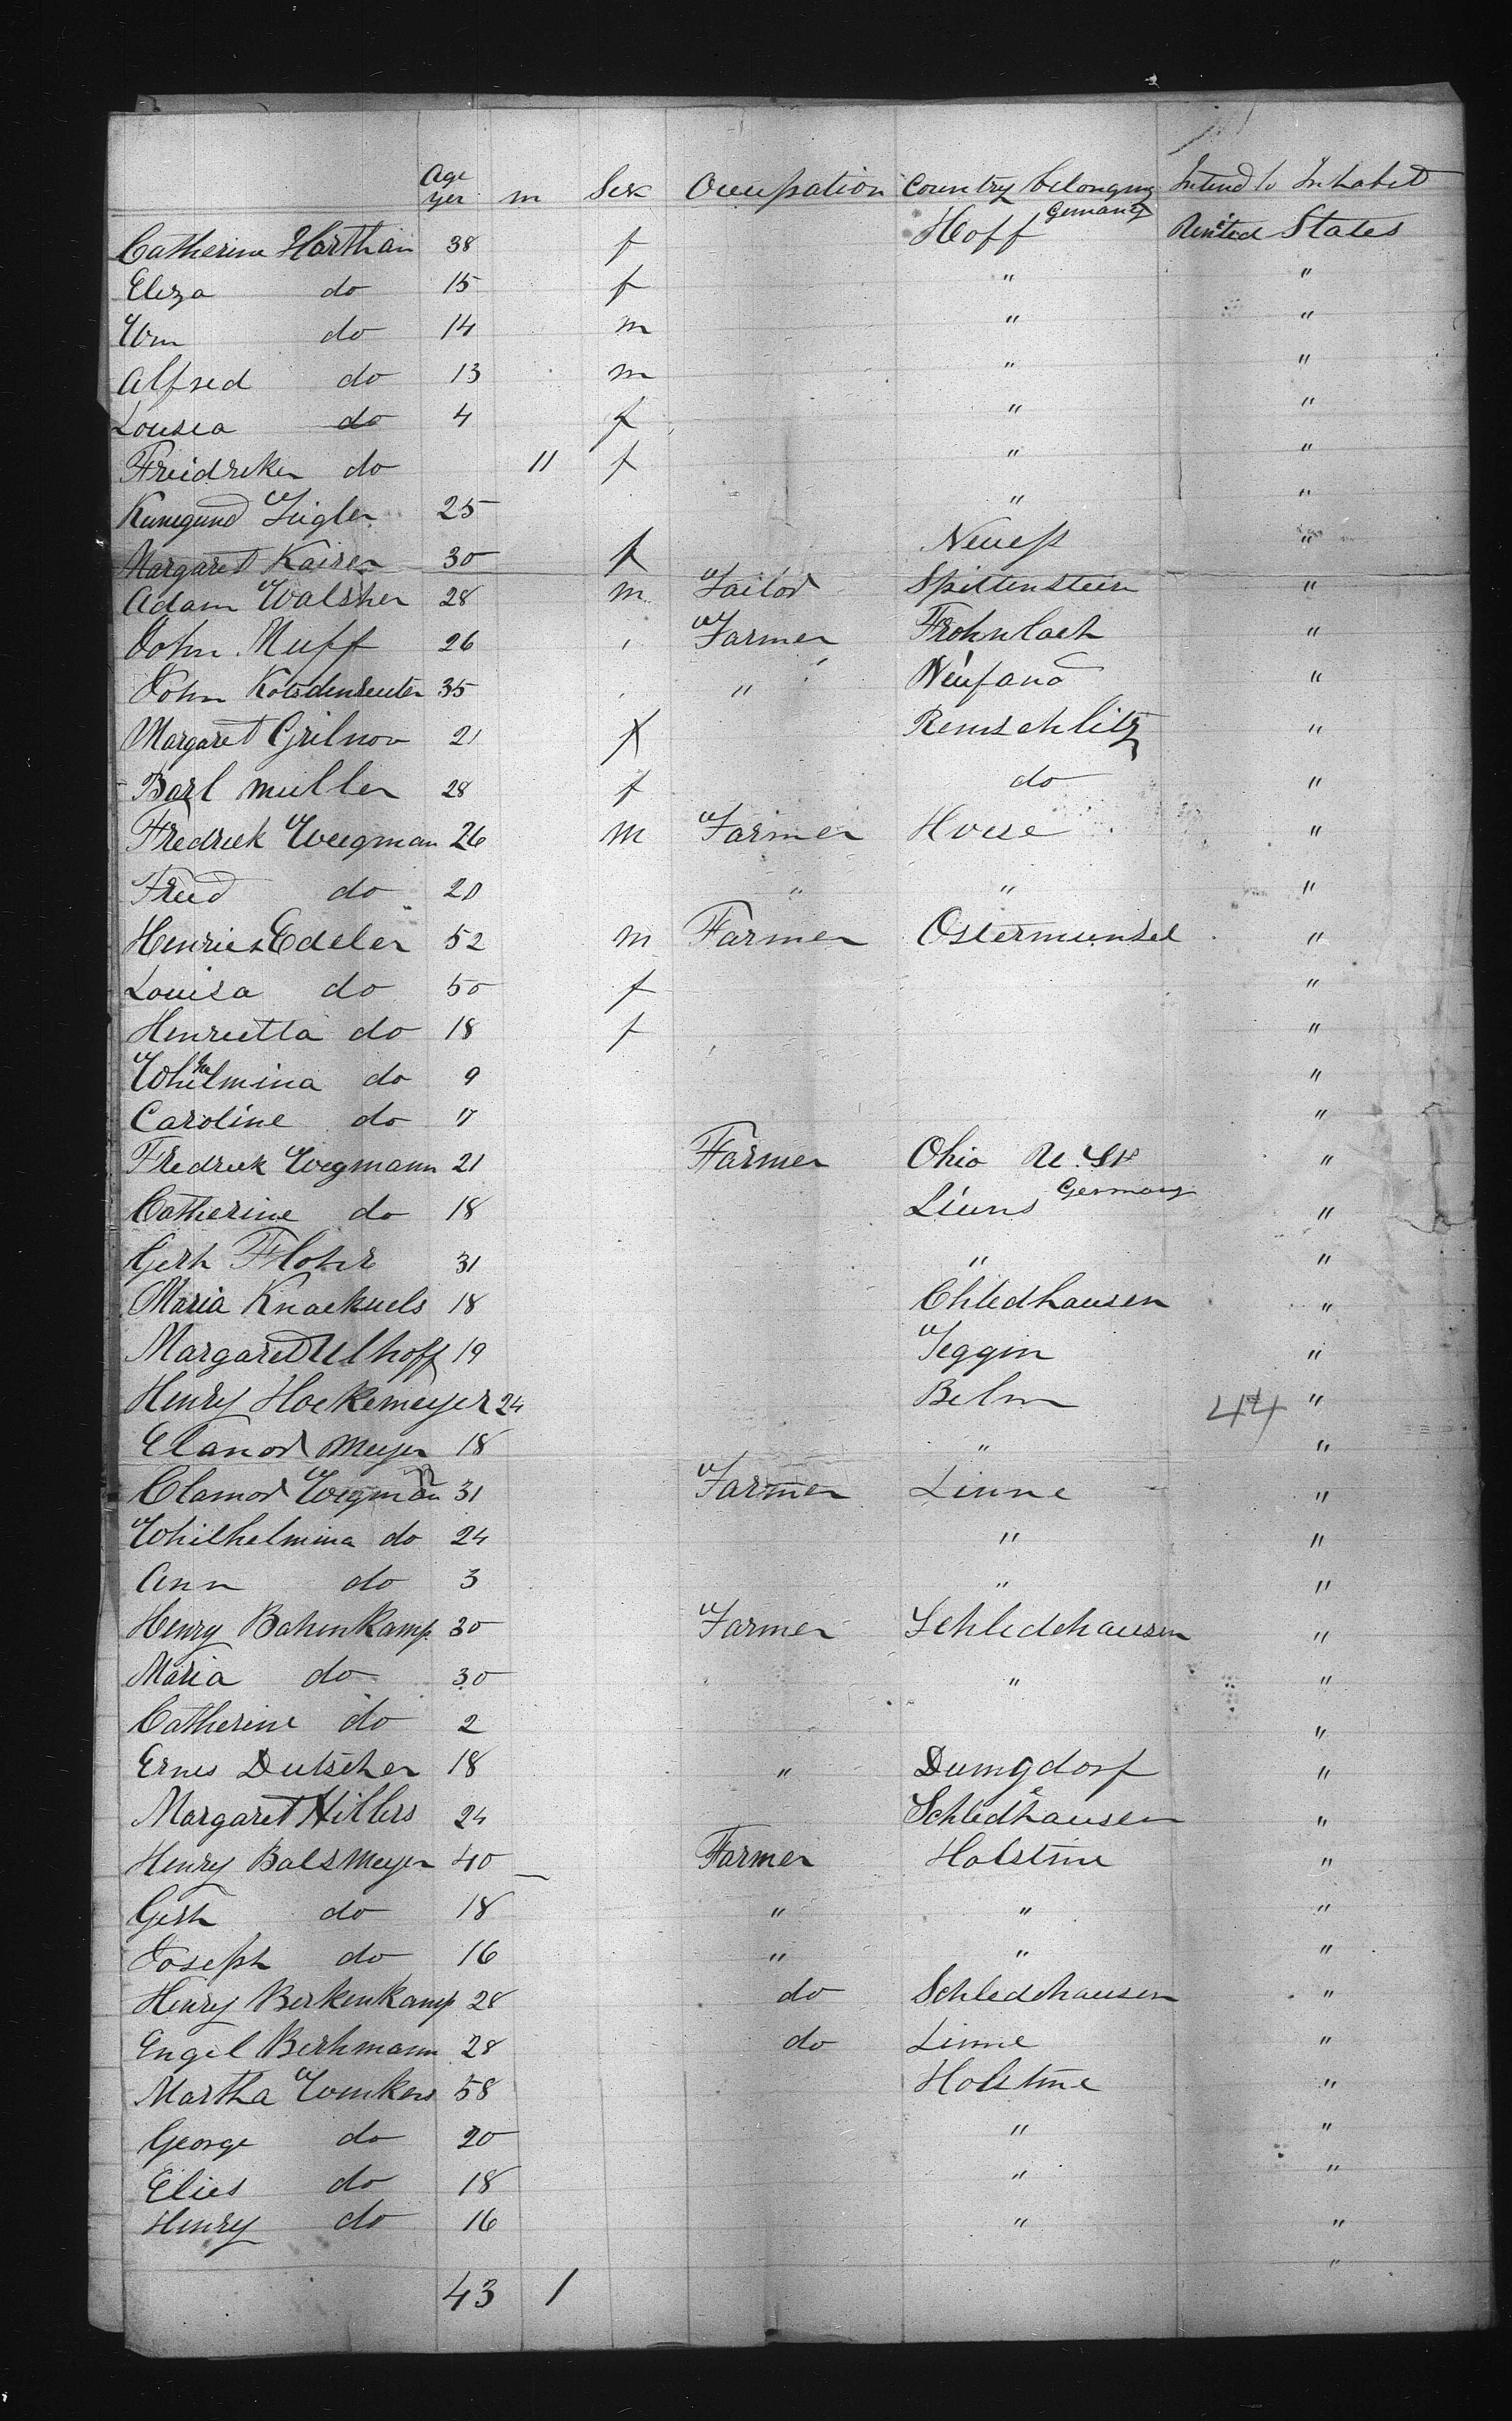 Age yer m Sex Occupation Country belonging Intend to Inhabit
Catherine Harthan 38 f Hoff Germany United States
Eliza do 15 f " "
Wm do 14 m " "
Alfred do 13 m " "
Lousea do 4 f " "
Freidreken do 11 f " "
Kunegund Zeigler 25 " "
Margaret Kaiser 30 f "
Adam Walsher 28 m Tailor Spittenstein "
John Muff 26 Farmer Frohnlach "
John 35 " Neufand "
Margaret 21 f Remschlitz "
Barl muller 28 f do "
Fredriek Weegman 26 m Farmer Hoese "
Freed do 20 " " "
Edeler 52 m Farmer Ostermunsel "
Louisa do 50 f "
Henrietta do 18 f "
Whilmina do 9 "
Caroline do 17 "
Fredriek Wegmann 21 Farmer Ohio U. St "
Catherine do 18 Germany "
Gerh Flohr 31 " "
Maria Knaekuels 18 Chledhausen "
Margaret Ulhoff 19 Jeggin "
Henry Hoekemeyer 24 Belm 44 "
Elanor Meyer 18 " "
Clamor Wegmann 31 Farmer Linne "
Whilhelmina do 24 " "
Ann do 3 " "
Henry Bahenkamp 30 Farmer Schledehausen "
Maria do 30 " "
Catherine do 2 "
Ernes Dutscher 18 " Dumgdorf "
Margaret Hillers 24 Schledehausen "
Henry Balsmeyer 40 Farmer Holstine "
Gerh do 18 " " "
Joseph do 16 " " "
Henry Berkenkamp 28 do Schledehausen "
Engel Berhmann 28 do Linne "
Martha Wenkers 58 Holstine "
George do 20 " "
Elies do 18 " "
Henry do 16 " "
"
43 1